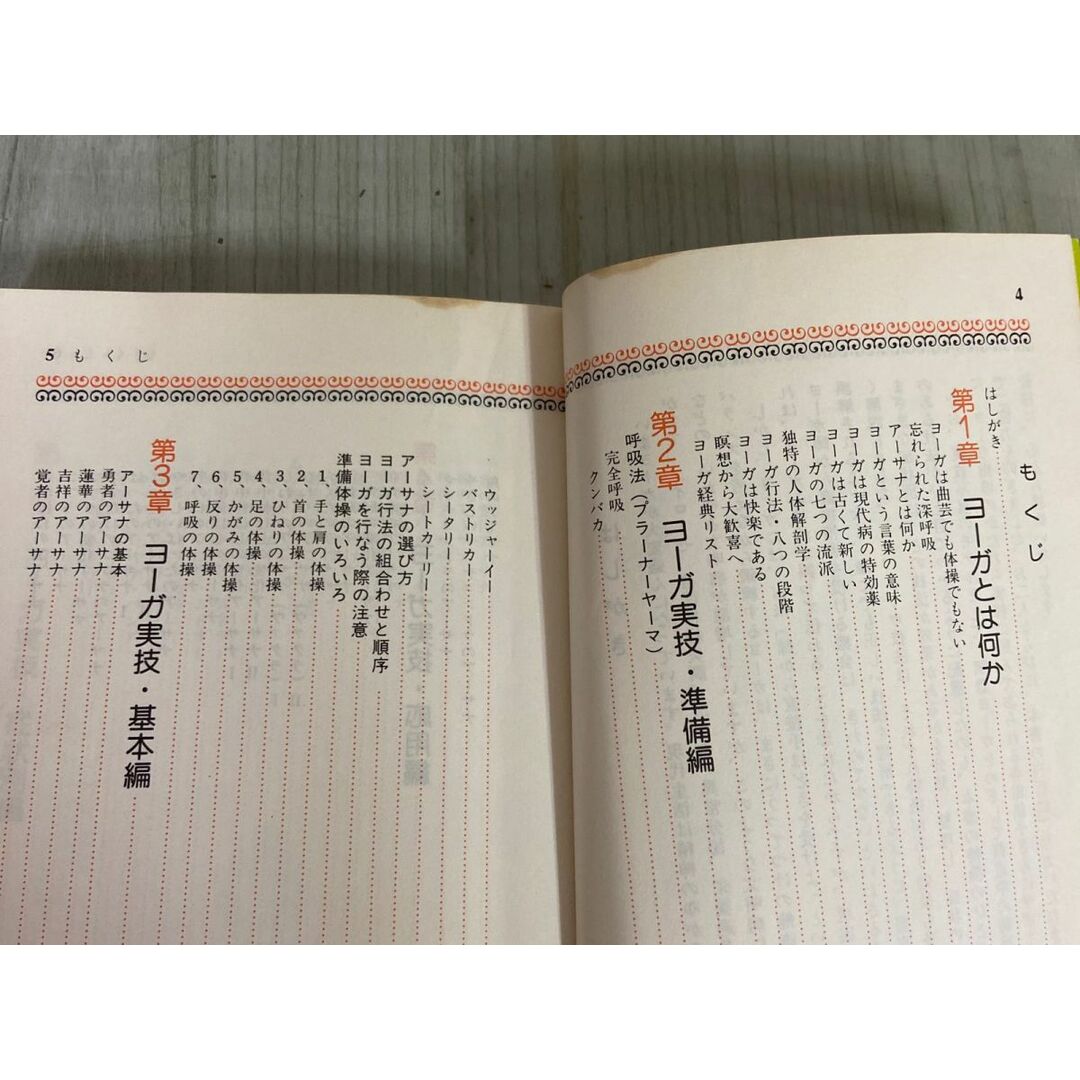 4
もくじ
はしがき
第1章 ヨーガとは何か
ヨーガは曲芸でも体操でもない
忘れられた深呼吸
アーサナとは何か
ヨーガという言葉の意味
ヨーガは現代病の特効薬
ヨーガは古くて新しい
ヨーガの七つの流派
独特の人体解剖学
ヨーガ行法・八つの段階
ヨーガは快楽である
瞑想から大歓喜へ
ヨーガ経典リスト
第2章 ヨーガ実技・準備編
呼吸法(プラーナーヤーマ)
完全呼吸
クンバカ
5 もくじ
ウッジャーイー
バストリカー
シータリー
シートカーリー
アーサナの選び方
ヨーガ行法の組合わせと順序
ヨーガを行なう際の注意
準備体操のいろいろ
1、手と肩の体操
2、首の体操
3、ひねりの体操
4、足の体操
5、かがみの体操
6、反りの体操
7、呼吸の体操
第3章 ヨーガ実技・基本編
アーサナの基本
勇者のアーサナ
蓮華のアーサナ
吉祥のアーサナ
覚者のアーサナ